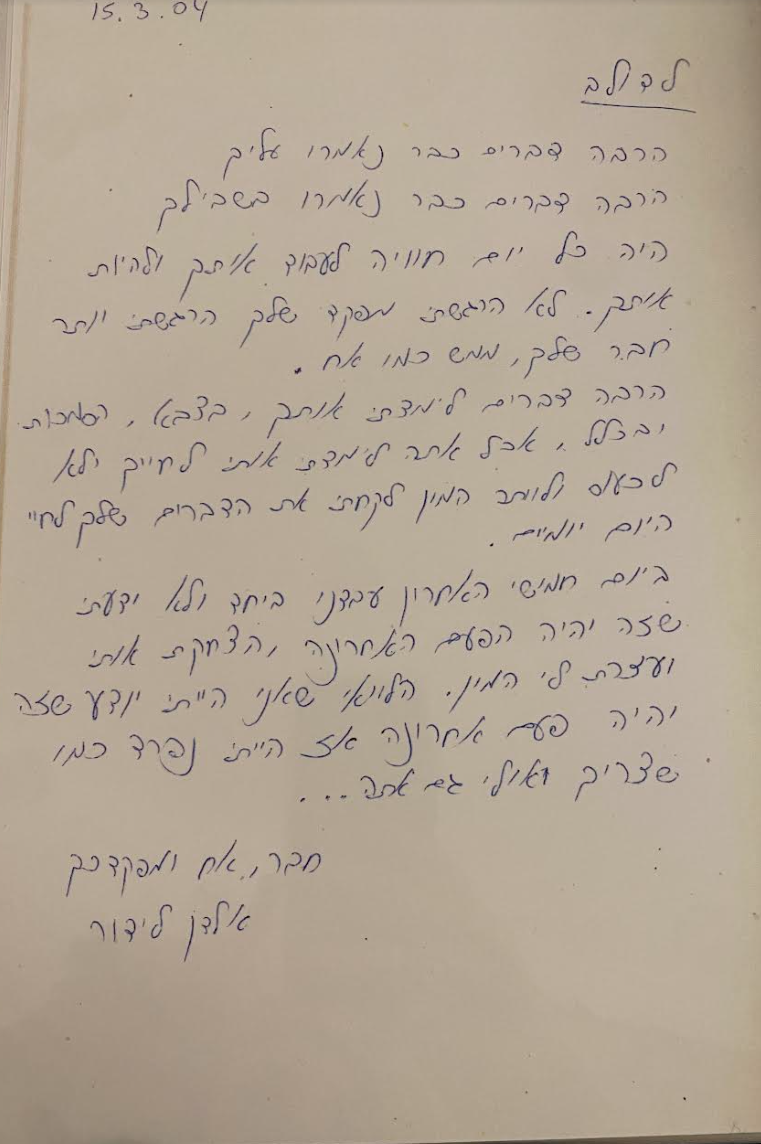 15.3.04
לדולב
הרבה דברים כבר נאמרו עליך
הרבה דברים כבר נאמרו בשבילך
היה כל יום חוויה לעבוד אותך ולהיות
אותך. לא הרגשתי מפקד שלך הרגשתי יותר
חבר שלך, ממש כמו אח.
הרבה דברים לימדתי אותך, בצבא, הסמכות
ובכלל, אבל אתה לימדת אותי לחייך ולא
לכעוס ולותר המון לקחתי את הדברים שלך לחיי
היום יומיים.
ביום חמישי האחרון עבדנו ביחד ולא ידעתי
שזה יהיה הפעם האחרונה, הצחקת אותי
ועזרת לי המון. הלוואי שאני הייתי יודע שזה
יהיה פעם אחרונה אז הייתי נפרד כמו
שצריך ואולי גם אתה...
חבר, אח ומפקדך
אלדן לידור